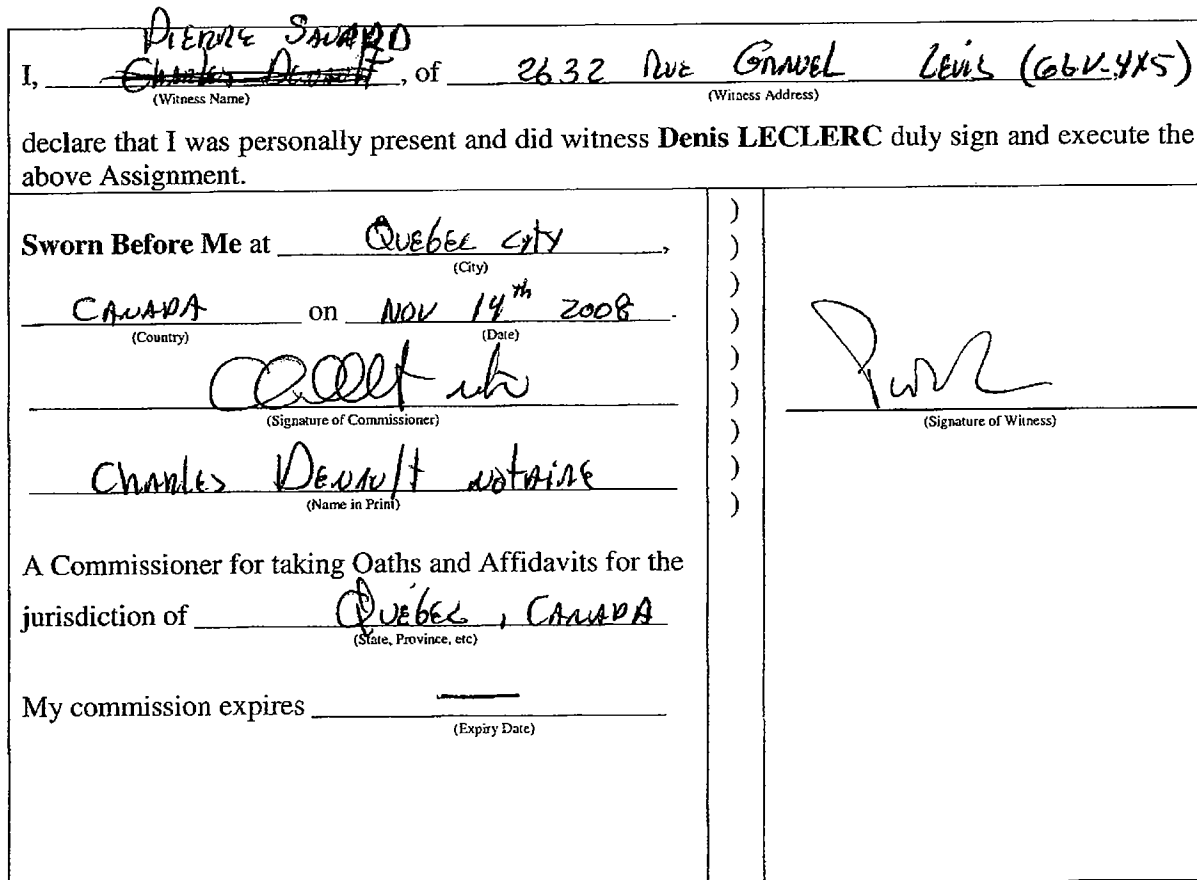 PIERRE SAVARD
I, Charles Denault, of 2632 RUE GRAVEL LEVIS (G6V-4X5)
(Witness Name) (Witness Address)
declare that I was personally present and did witness Denis LECLERC duly sign and execute the
above Assignment.
Sworn Before Me at QUEBEC CITY,
(City)
CANADA on NOV 14th 2008.
(Country) (Date)
(Signature of Commissioner)
(Signature of Witness)
Charles DENAULT NOTAIRE
(Name in Print)
A Commissioner for taking Oaths and Affidavits for the
jurisdiction of QUÉBEC, CANADA
(State, Province, etc)
My commission expires —
(Expiry Date)
)
)
)
)
)
)
)
)
)